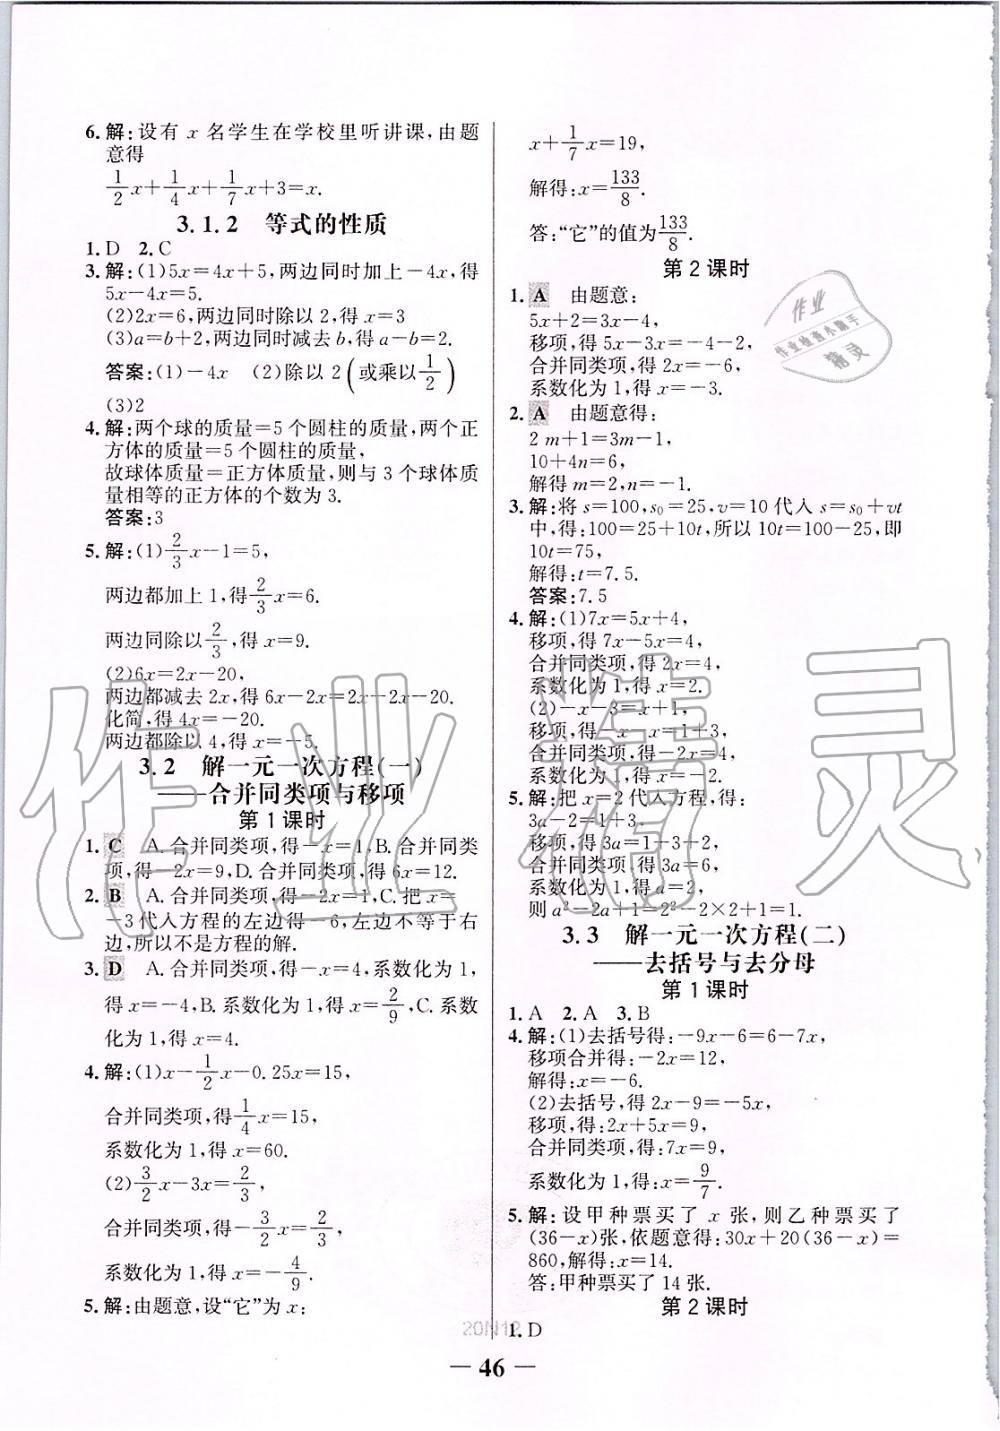 6.解:设有 x 名学生在学校里听讲课,由题
意得
1/2x+1/4x+1/7x+3=x.
3.1.2 等式的性质
1.D 2.C
3.解:(1)5x=4x+5,两边同时加上-4x,得
5x-4x=5.
(2)2x=6,两边同时除以2,得x=3
(3)a=b+2,两边同时减去b,得a-b=2.
答案:(1)-4x (2)除以2(或乘以1/2)
(3)2
4.解:两个球的质量=5个圆柱的质量,两个正
方体的质量=5个圆柱的质量,
故球体质量=正方体质量,则与3个球体质
量相等的正方体的个数为3.
答案:3
5.解:(1)2/3x-1=5,
两边都加上1,得2/3x=6.
两边同除以2/3,得x=9.
(2)6x=2x-20,
两边都减去2x,得6x-2x=2x-2x-20.
化简,得4x=-20.
两边都除以4,得x=-5.
3.2 解一元一次方程(一)
——合并同类项与移项
第1课时
1.C A.合并同类项,得-x=1,B.合并同类
项,得-2x=9,D.合并同类项,得6x=12.
2.B A.合并同类项,得-2x=1,C.把x=
-3代入方程的左边得-6,左边不等于右
边,所以不是方程的解.
3.D A.合并同类项,得-x=4,系数化为1,
得x=-4,B.系数化为1,得x=2/9,C.系数
化为1,得x=4.
4.解:(1)x-1/2x-0.25x=15,
合并同类项,得1/4x=15,
系数化为1,得x=60.
(2)3/2x-3x=2/3,
合并同类项,得-3/2x=2/3,
系数化为1,得x=-4/9.
5.解:由题意,设“它”为x:
x+1/7x=19,
解得:x=133/8.
答:“它”的值为133/8.
第2课时
1.A 由题意:
5x+2=3x-4,
移项,得5x-3x=-4-2,
合并同类项,得2x=-6,
系数化为1,得x=-3.
2.A 由题意得:
2m+1=3m-1,
10+4n=6,
解得m=2,n=-1.
3.解:将s=100,s₀=25,v=10代入s=s₀+vt
中,得:100=25+10t,所以10t=100-25,即
10t=75,
解得:t=7.5.
答案:7.5
4.解:(1)7x=5x+4,
移项,得7x-5x=4,
合并同类项,得2x=4,
系数化为1,得x=2.
(2)-x-3=x+1,
移项,得-x-x=1+3,
合并同类项,得-2x=4,
系数化为1,得x=-2.
5.解:把x=2代入方程,得:
3a-2=1+3,
移项,得3a=1+3+2,
合并同类项,得3a=6,
系数化为1,得a=2,
则a²-2a+1=2²-2×2+1=1.
3.3 解一元一次方程(二)
——去括号与去分母
第1课时
1.A 2.A 3.B
4.解:(1)去括号得:-9x-6=6-7x,
移项合并得:-2x=12,
解得:x=-6.
(2)去括号,得2x-9=-5x,
移项,得:2x+5x=9,
合并同类项,得:7x=9,
系数化为1,得:x=9/7.
5.解:设甲种票买了x张,则乙种票买了
(36-x)张,依题意得:30x+20(36-x)=
860,解得:x=14.
答:甲种票买了14张.
第2课时
1.D
20N12
— 46 —
作业精灵
作业
作业检查小助手
精灵